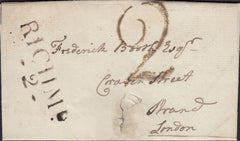 RICHMD
2
2
Frederick Booth Esqr.
Craven Street
Strand
London